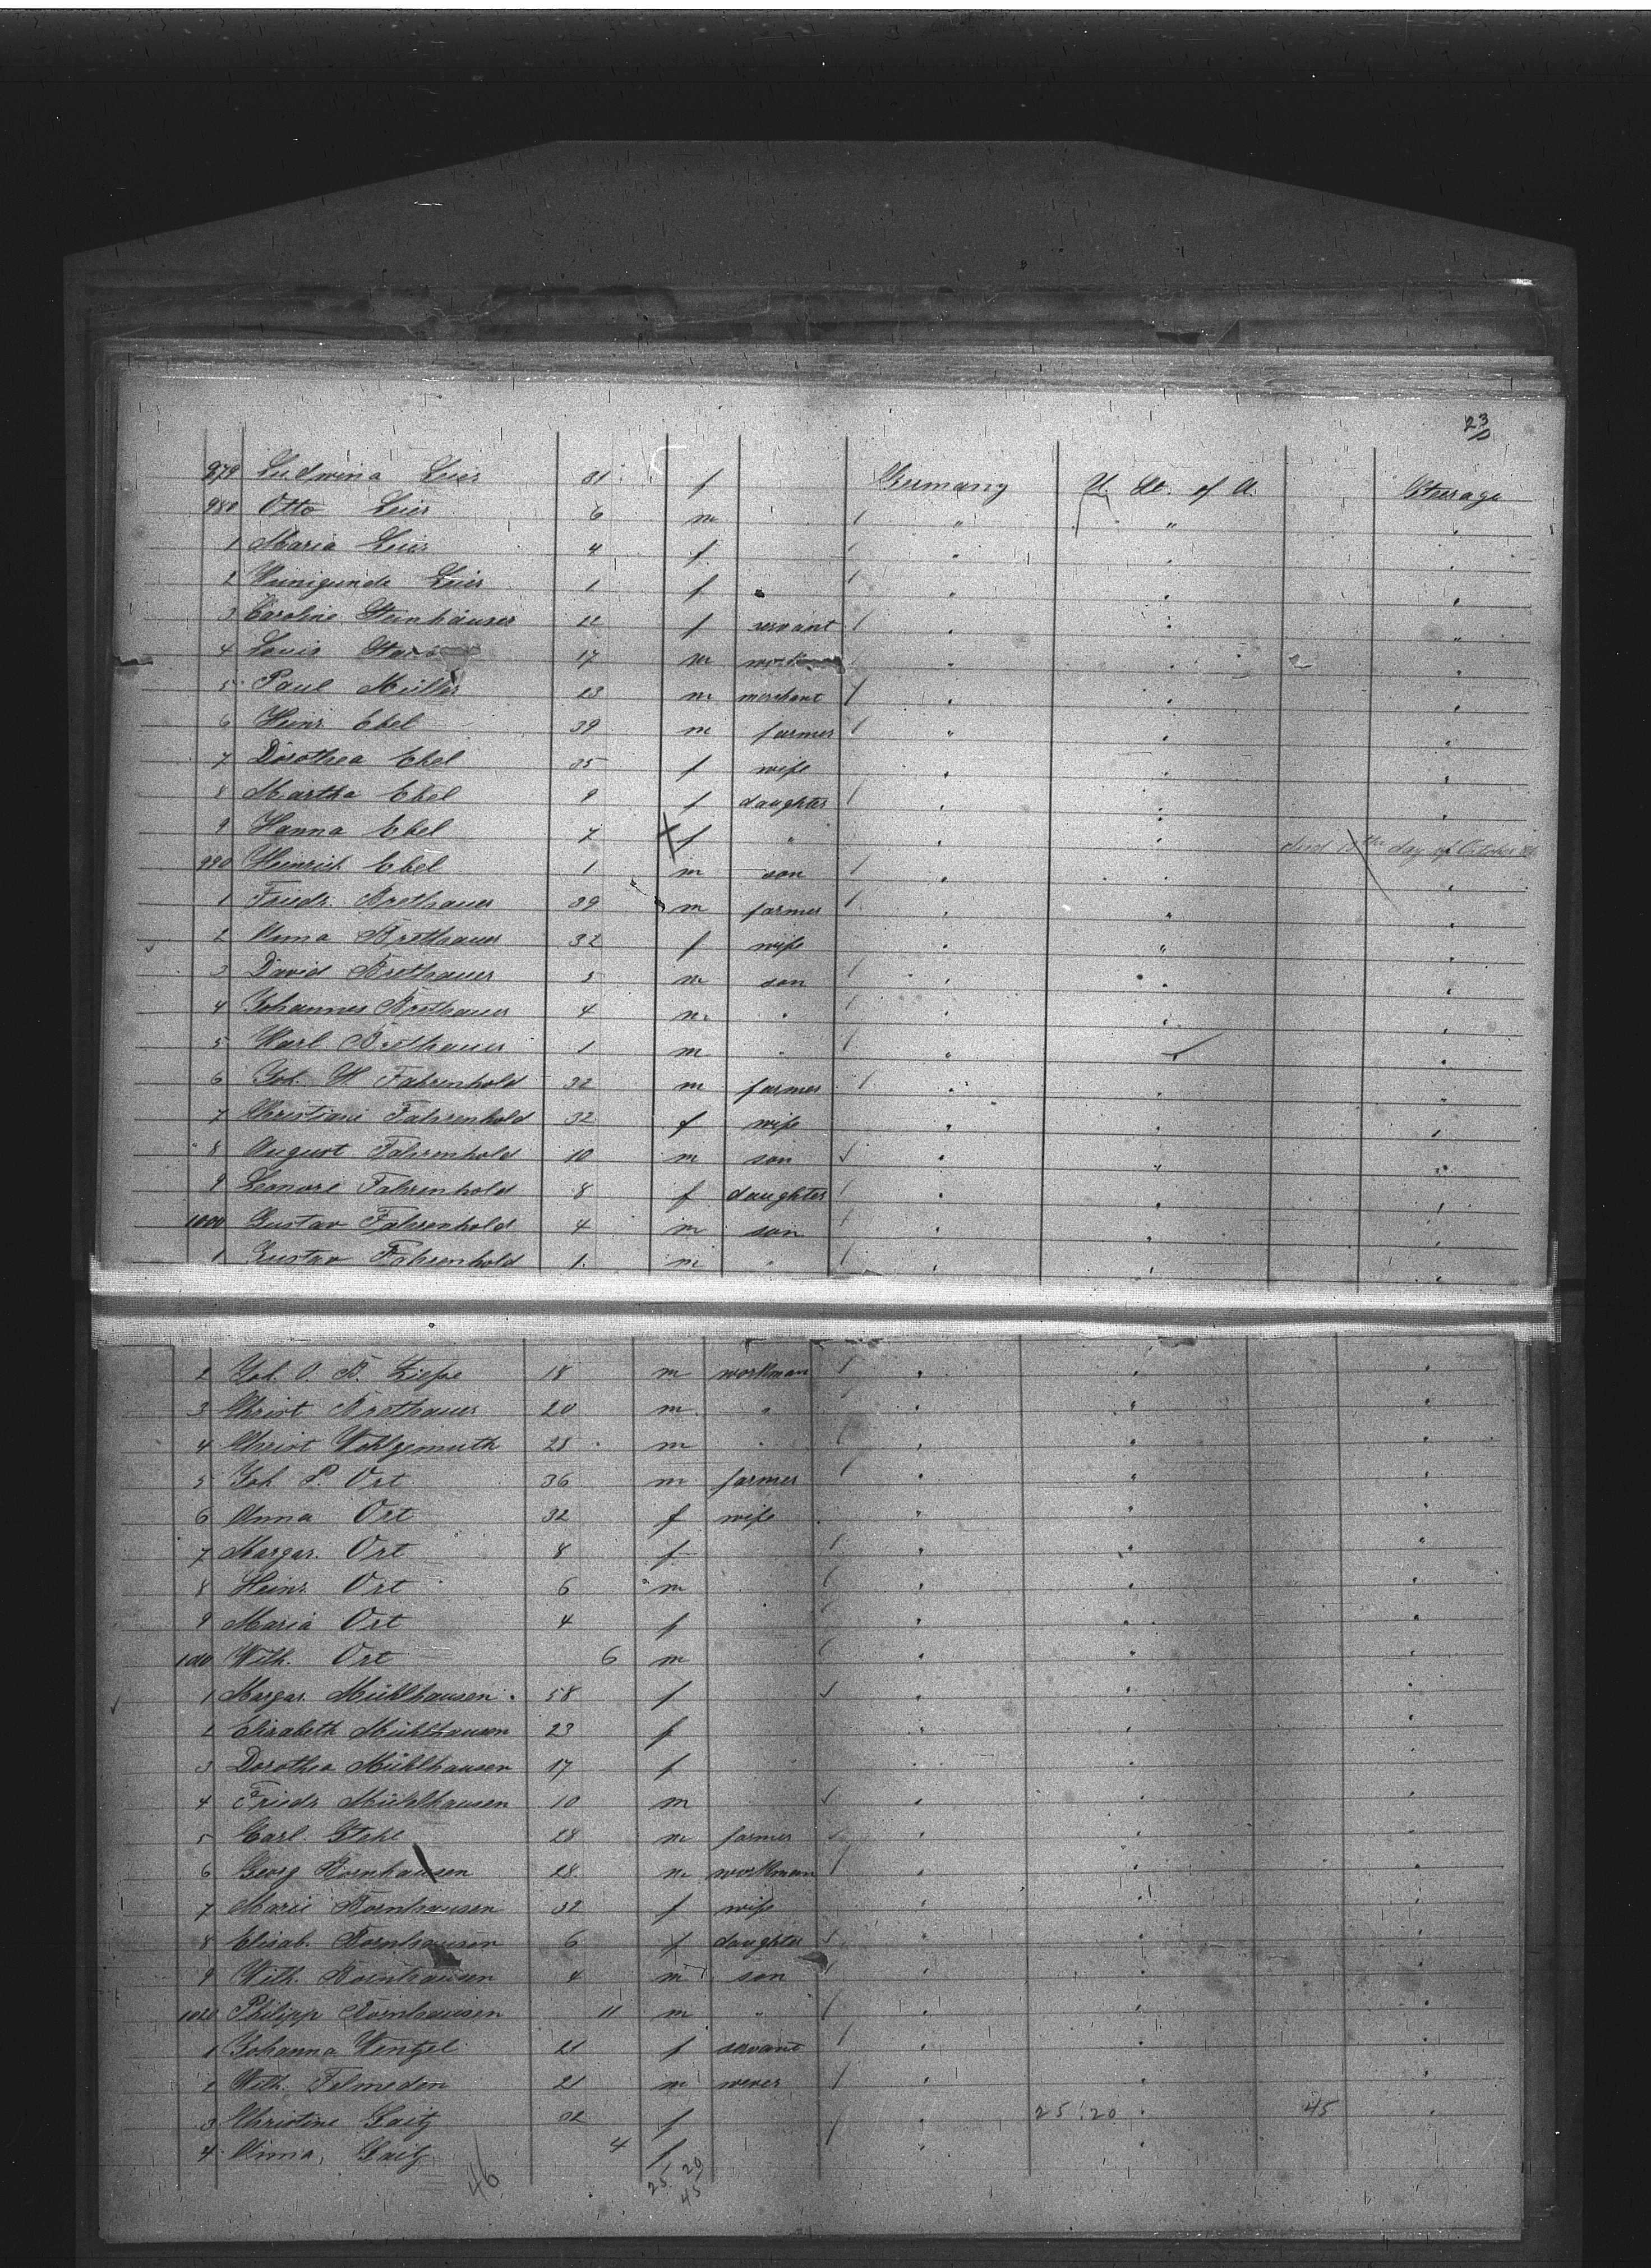 23
979 Ludwina Leis 31 f Germany U. St. of A. Steerage
980 Otto Leis 6 m " " "
1 Maria Leis 4 f " " "
2 Kunigunde Leis 1 f " " "
3 Caroline Steinhäuser 22 f servant " " "
4 Louis 17 m " " "
5 Paul Müller 23 m merchant " " "
6 Heinr. Ebel 39 m farmer " " "
7 Dorothea Ebel 35 f wife " " "
8 Martha Ebel 9 f daughter " " "
9 Hanna Ebel 7 f " " " died day of October
990 Heinrich Ebel 1 m son " " "
1 Friedr. Brethauer 39 m farmer " " "
2 Anna Brethauer 32 f wife " " "
3 David Brethauer 5 m son " " "
4 Johannes Brethauer 4 m " " " "
5 Karl Brethauer 1 m " " " "
6 Joh. H. Fahrenhold 32 m farmer " " "
7 Christiani Fahrenhold 32 f wife " " "
8 August Fahrenhold 10 m son " " "
9 Leonore Fahrenhold 8 f daughter " " "
1000 Gustav Fahrenhold 4 m son " " "
1 Gustav Fahrenhold 1 m " " " "
2 Joh. O. B. Liepe 18 m workman " " "
3 Christ Brethauer 20 m " " " "
4 Christ Wohlgemuth 28 m " " " "
5 Joh. P. Ort 36 m farmer " " "
6 Anna Ort 32 f wife " " "
7 Margar. Ort 8 f " " "
8 Heinr. Ort 6 m " " "
9 Maria Ort 4 f " " "
1010 Wilh. Ort 6 m " " "
1 Margar. Mühlhausen 58 f " " "
2 Elisabeth Mühlhausen 23 f " " "
3 Dorothea Mühlhausen 17 f " " "
4 Friedr. Mühlhausen 10 m " " "
5 Carl Stehl 28 m farmer " " "
6 Georg Bornhausen 28 m workman " " "
7 Marie Bornhausen 32 f wife " " "
8 Elisab. Bornhausen 6 f daughter " " "
9 Wilh. Bornhausen 4 m son " " "
1020 Philipp Bornhausen 11 m " " " "
1 Johanna Wentzel 21 f servant " " "
2 Wilh. Felmeden 21 m wever " " "
3 Christine Laitz 32 f " 25 20 " 45 "
4 Anna Laitz 4 f " " "
46 25 20
45